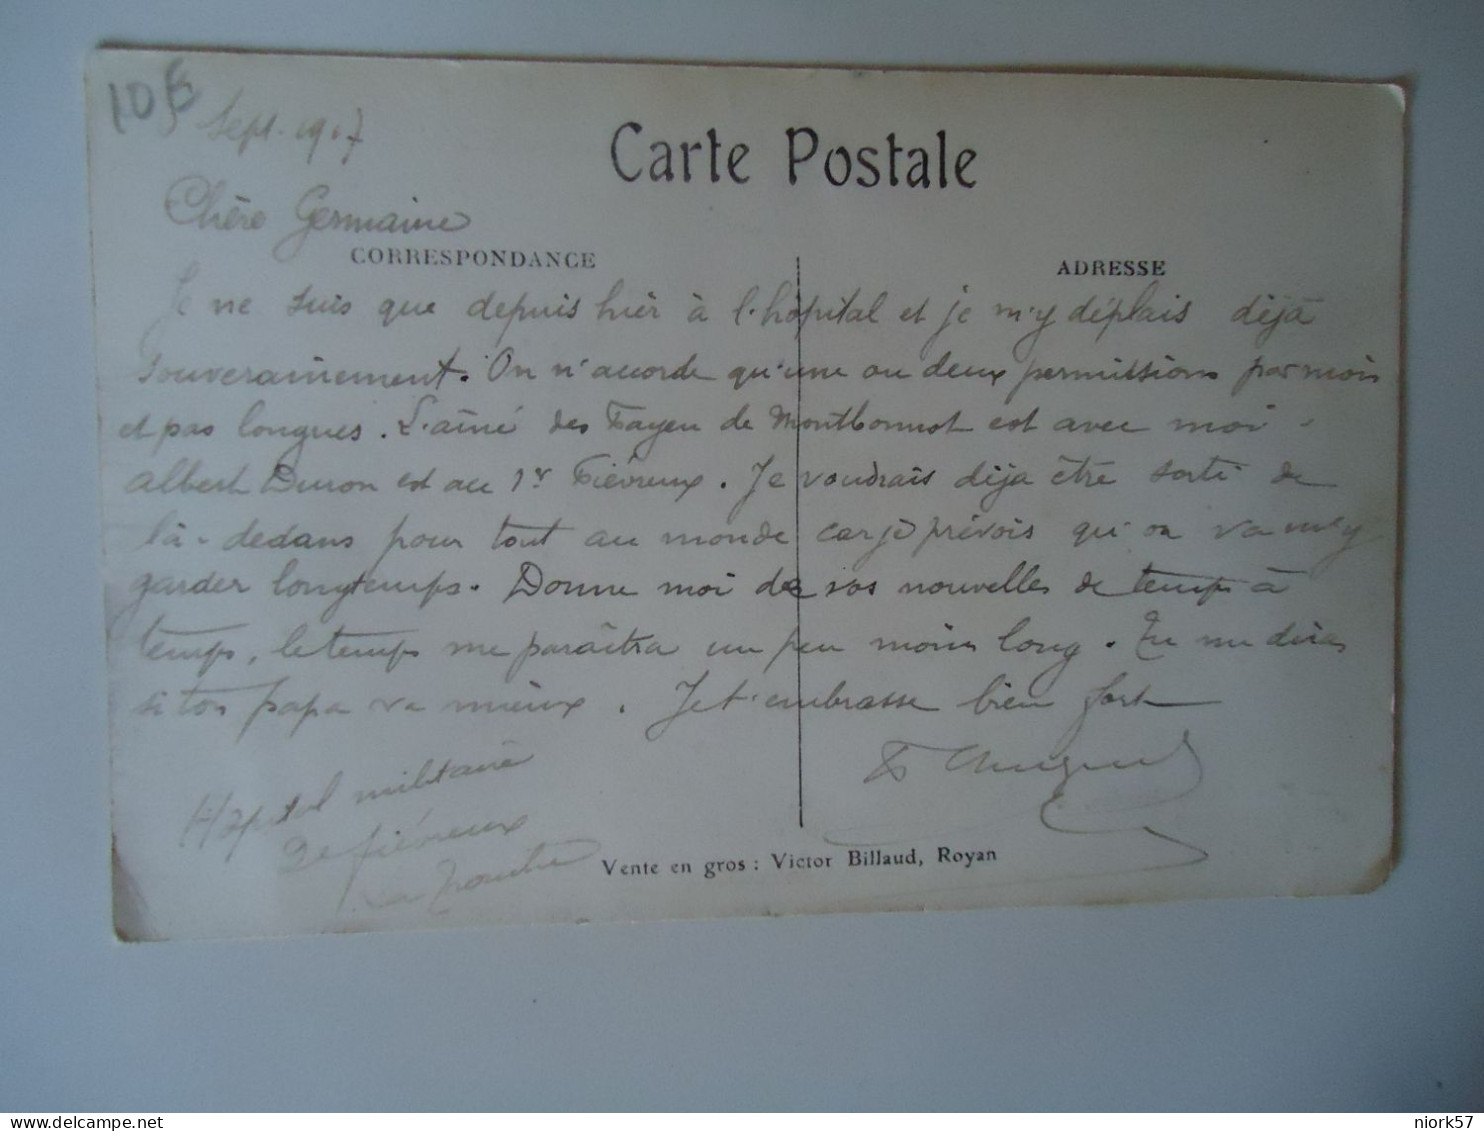 10€
Sept. 1917
Carte Postale
Chère Germaine
CORRESPONDANCE
ADRESSE
Je ne suis que depuis hier à l'hôpital et je m'y déplais déjà
souverainement. On n'accorde qu'une ou deux permissions par mois
et pas longues. L'aîné des Fayen de Montbonnot est avec moi.
Albert Duron est au 1er Fiévreux. Je voudrais déja être sorti de
là-dedans pour tout au monde car je prévois qu'on va m'y
garder longtemps. Donne moi de vos nouvelles de temps à
temps, le temps me paraîtra un peu moins long. Tu me diras
si ton papa va mieux. Je t'embrasse bien fort
Hôpital militaire
2e fiévreux
La Tronche
Vente en gros : Victor Billaud, Royan
niork57